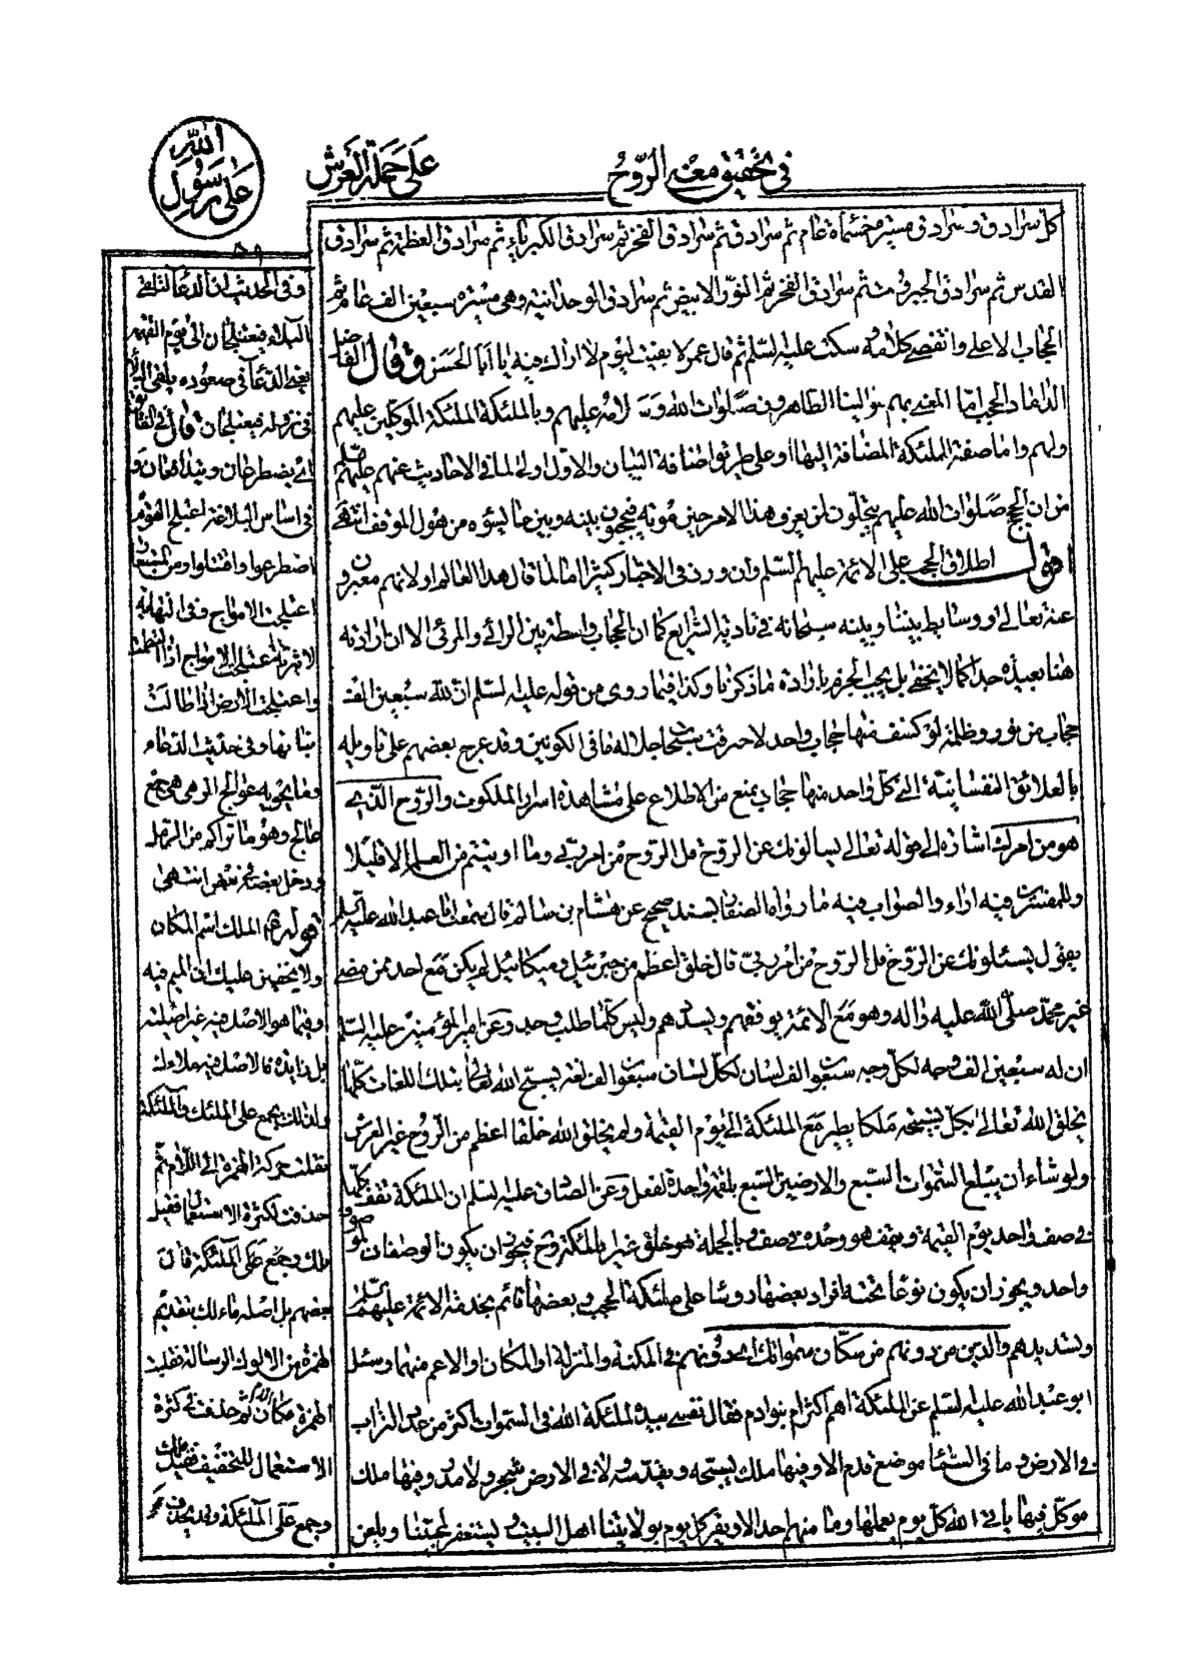 في تحقيق معنى الروح
على حملة العرش
الله
على رسول
كل سرادق وسرادق مسيرة خمسمائة عام ثم سرادق ثم سرادق الفخر ثم سرادق الكبرياء ثم سرادق العظمة ثم سرادق
القدس ثم سرادق الجبروت ثم سرادق الفخر ثم النور الابيض ثم سرادق الوحدانية وهى مسيرة سبعين الف عام ثم
الحجاب الاعلى وانقضى كلامه وسكت عليه السلم ثم قال عمر لا بقيت ليوم لا اراك فيه يا ابا الحسن وقال الفاضل
الداماد الحجب امّا المعنى بهم موالينا الطاهرون صلوات الله وسلامه عليهم وبالملئكة الملئكة الموكلين عليهم
ولهم واما صفة الملئكة المضافة اليها او على طريق اضافة البيان والاول اولى لما في الاحاديث عنهم عليهم السلم
من ان الحجج صلوات الله عليهم يتجلون لمن يعرف هذا الامر حين موته فيحجبون بينه وبين ما يسؤه من هول الموقف انتهى
اقول اطلاق الحجب على الائمة عليهم السلم وان ورد فى الاخبار كثيرا اما لما قال هذا العالم او لانهم معبرون
عنه تعالى او وسايط بيننا وبينه سبحانه في تادية الشرايع كما ان الحجاب واسطة بين الرائي والمرئى الا ان ارادته
هنا بعيدة جدا كما لا يخفى بل يجب الجزم بارادة ما ذكرنا وكذا فيما روى من قوله عليه السلم ان لله سبعين الف
حجاب من نور وظلمة لو كشف منها حجاب واحد لاحرقت سبحات جلاله ما في الكونين وقد عرج بعضهم على تاويله
بالعلائق النفسانية التى كل واحد منها حجاب يمنع من الاطلاع على مشاهدة اسرار الملكوت والروح الذى
هو من امرك اشارة الى قوله تعالى يسالونك عن الروح قل الروح من امر ربى وما اوتيتم من العلم الا قليلا
وللمفسرين فيه اراء والصواب فيه ما رواه الصفار بسند صحيح عن هشام بن سالم قال سمعت ابا عبد الله عليه السلم
يقول يسئلونك عن الروح قل الروح من امر ربى قال خلق اعظم من جبرئيل وميكائيل لم يكن مع احد ممن مضى
غير محمد صلى الله عليه واله وهو مع الائمة يوفقهم ويسددهم وليس كلما طلب وجد وعن امير المؤمنين عليه السلم
ان له سبعين الف وجه لكل وجه سبعون الف لسان لكل لسان سبعون الف لغة يسبح الله تعالى بتلك اللغات كلها
يخلق الله تعالى بكل تسبيحة ملكا يطير مع الملئكة الى يوم القيمة ولم يخلق الله خلقا اعظم من الروح غير العرش
ولو شاء ان يبلع السموات السبع والارضين السبع بلقمة واحدة لفعل وعن الصادق عليه السلم ان الملئكة تقف كلها
في صف واحد يوم القيمة ويقف هو وحده في صف وبالجملة هو خلق غير الملئكة فيجوز ان يكون الوصفان لموصوف
واحد ويجوز ان يكون نوعا تحته افراد بعضها روسا على ملئكة الحجب وبعضها قائم بخدمة الائمة عليهم السلم
وتسديدهم والذين من دونهم من سكان سمواتك اى دونهم في المكنة والمنزلة او المكان او الاعم منهما وسئل
ابو عبد الله عليه السلم عن الملئكة اهم اكثر ام بنو ادم فقال نفسى بيده لملئكة الله في السموات اكثر من عدد التراب
في الارض وما في السماء موضع قدم الا وفيها ملك يسبحه ويقدسه ولا في الارض شجر ولا مدر وفيها ملك
موكل فيها ياتى الله كل يوم بعملها وما منهم احد الا ويتقرب كل يوم بولايتنا اهل البيت ويستغفر لمحبينا ويلعن
وفي الحديث ان الدعاء ليلقى
البلاء فيعتلجان الى يوم القيمة
يعنى الدعاء في صعوده يلقى البلاء
فى نزوله فيعتلجان قال في الفائق
اى يصطرعان ويتدافعان و
فى اساس البلاغة اعتلج القوم
اصطرعوا واقتتلوا ومن المستعار
اعتلجت الامواج وفى النهاية
الاثيرية اعتلجت الامواج اذا التطمت
واعتلجت الارض اذا طال
نباتها وفى حديث الدعاء
وما تحويه عوالج الرمل هى جمع
عالج وهو ما تراكم من الرمل
ودخل بعضه في بعض انتهى
قوله الملك اسم المكان
ولا يخفى عليك ان الميم فيه
وفيما هو الاصل فيه غير اصلية
بل زايدة فالاصل فيه ملاءك
ولذلك يجمع على الملئك والملئكة
نقلت حركة الهمزة الى اللام ثم
حذفت لكثرة الاستعمال فقيل
ملك وجمع على الملئكة قال
بعضهم بل اصله مالك بتقديم
الهمزة من الالوك الرسالة فقلبت
الهمزة مكان اللام ثم حذفت في كثرة
الاستعمال للتخفيف فقيل ملك
وجمع على الملئكة وقد يحذف